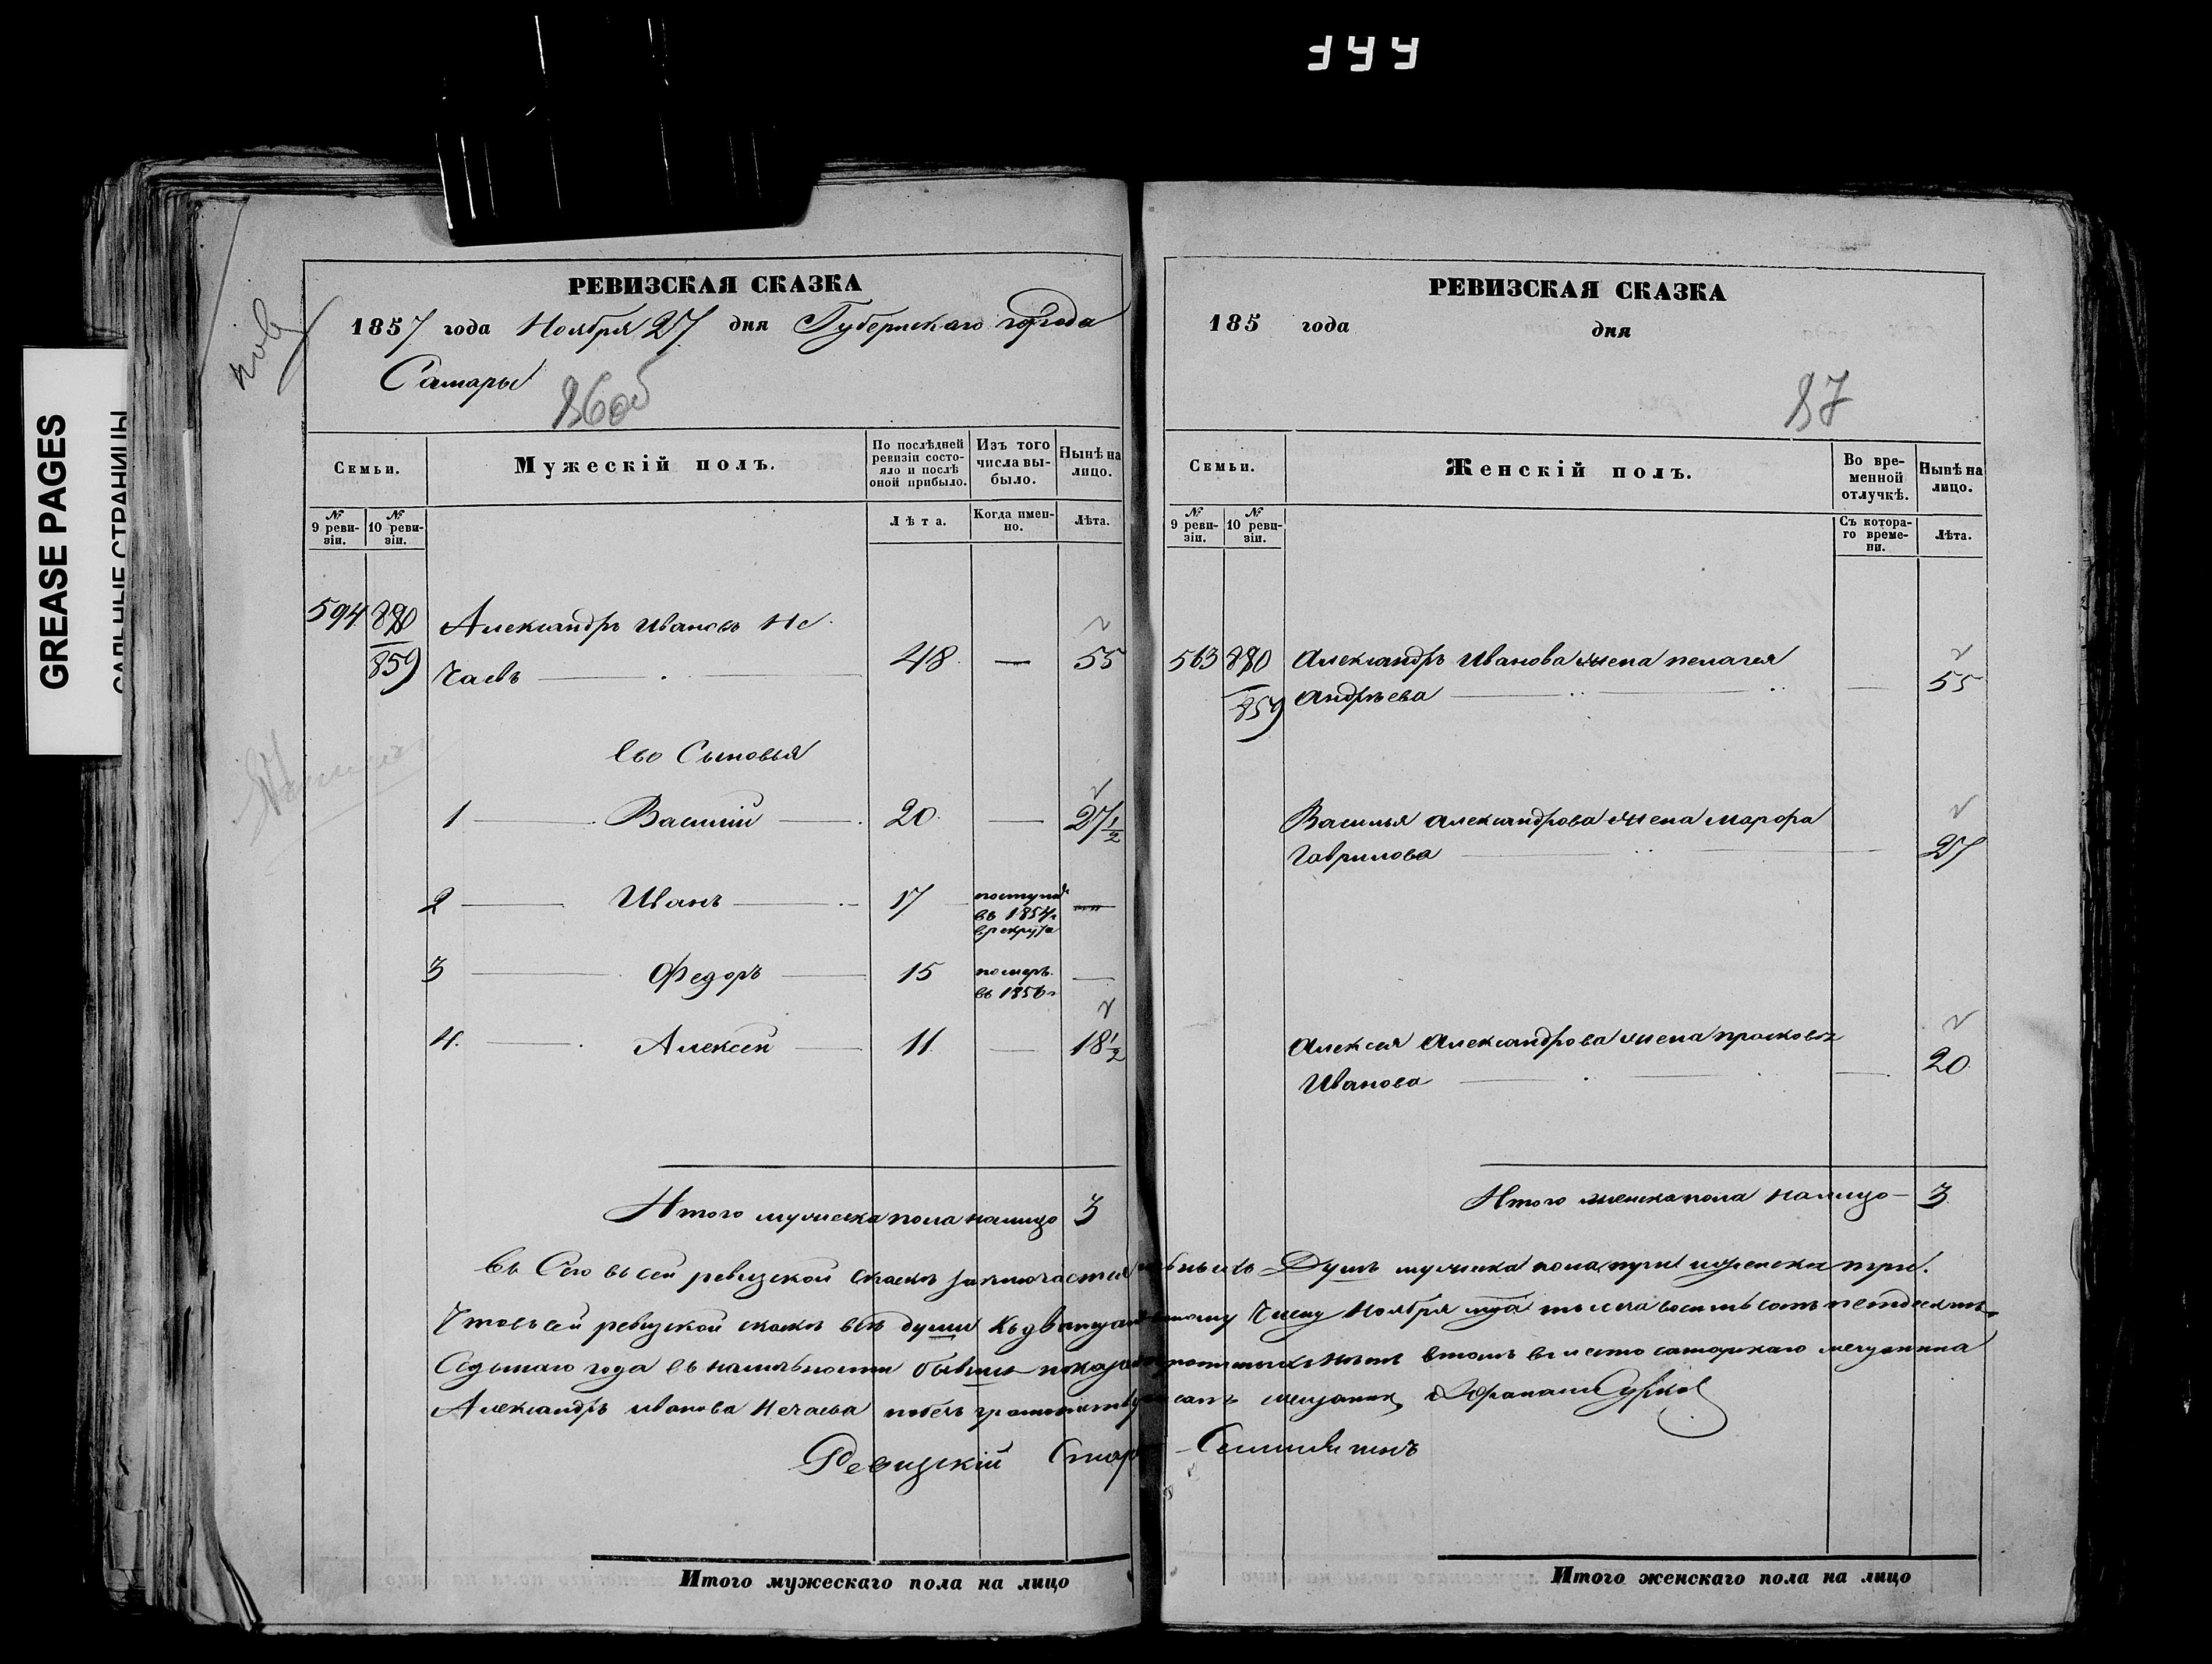 GREASE PAGES
САЛЬНЫЕ СТРАНИЦЫ
РЕВИЗСКАЯ СКАЗКА
1857 года Ноября 27 дня Губернскаго города
Самары
86об
Семьи.
Мужескій полъ.
По послѣдней ревизіи состояло и послѣ оной прибыло.
Изъ того числа выбыло.
Нынѣ на лицо.
№ 9 ревизіи.
№ 10 ревизіи.
Лѣта.
Когда именно.
Лѣта.
594 880 Александръ Ивановъ Не
859 чаевъ 48 — 55
Его Сыновья
1 Василій 20 — 27 1/2
2 Иванъ 17 поступилъ въ 1854 г в рекруты —
3 Федоръ 15 померъ въ 1856 г —
4. Алексей 11 — 18 1/2
Итого мужеска пола налицо 3
РЕВИЗСКАЯ СКАЗКА
185 года дня
87
Семьи.
Женскій полъ.
Во временной отлучкѣ.
Нынѣ на лицо.
№ 9 ревизіи.
№ 10 ревизіи.
Съ котораго времени.
Лѣта.
563 880 Александръ Иванова жена пелагея
859 Андрѣева — 55
Василья Александрова жена Марфа
Гаврилова 27
Алексея Александрова жена прасковья
Иванова — 20
Итого женска пола налицо — 3
въ сей ревизской скаскѣ заключается Душъ мужска пола три и женска три.
Что въ сей ревизской скаскѣ все души къ двадцать числу Ноября м-ца тысяча восемь сотъ петдесятъ
Седьмаго года въ наличности бывши показаны нетъ втомъ вместо самарскаго мещанина
Александръ иванова Нечаева мещанин Сурков
Ревизскій
Итого мужескаго пола на лицо
Итого женскаго пола на лицо